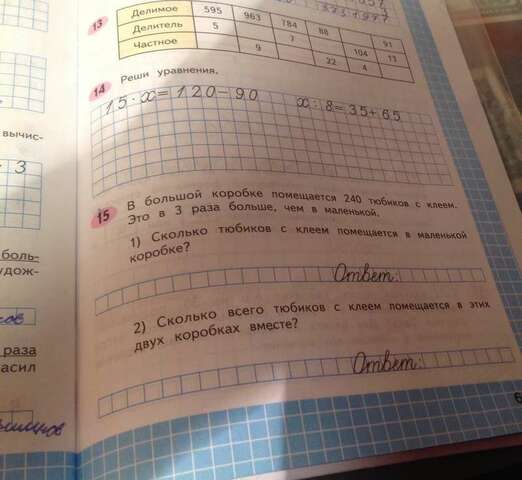 13
Делимое 595 963 784 88 91
Делитель 5 7 104 13
Частное 9 22 4
14 Реши уравнения.
15 · x = 120 – 90 x : 8 = 35 + 65
вычис-
3
15 В большой коробке помещается 240 тюбиков с клеем.
Это в 3 раза больше, чем в маленькой.
1) Сколько тюбиков с клеем помещается в маленькой
коробке?
Ответ:
2) Сколько всего тюбиков с клеем помещается в этих
двух коробках вместе?
Ответ:
боль-
удож-
ов
раза
асил
6